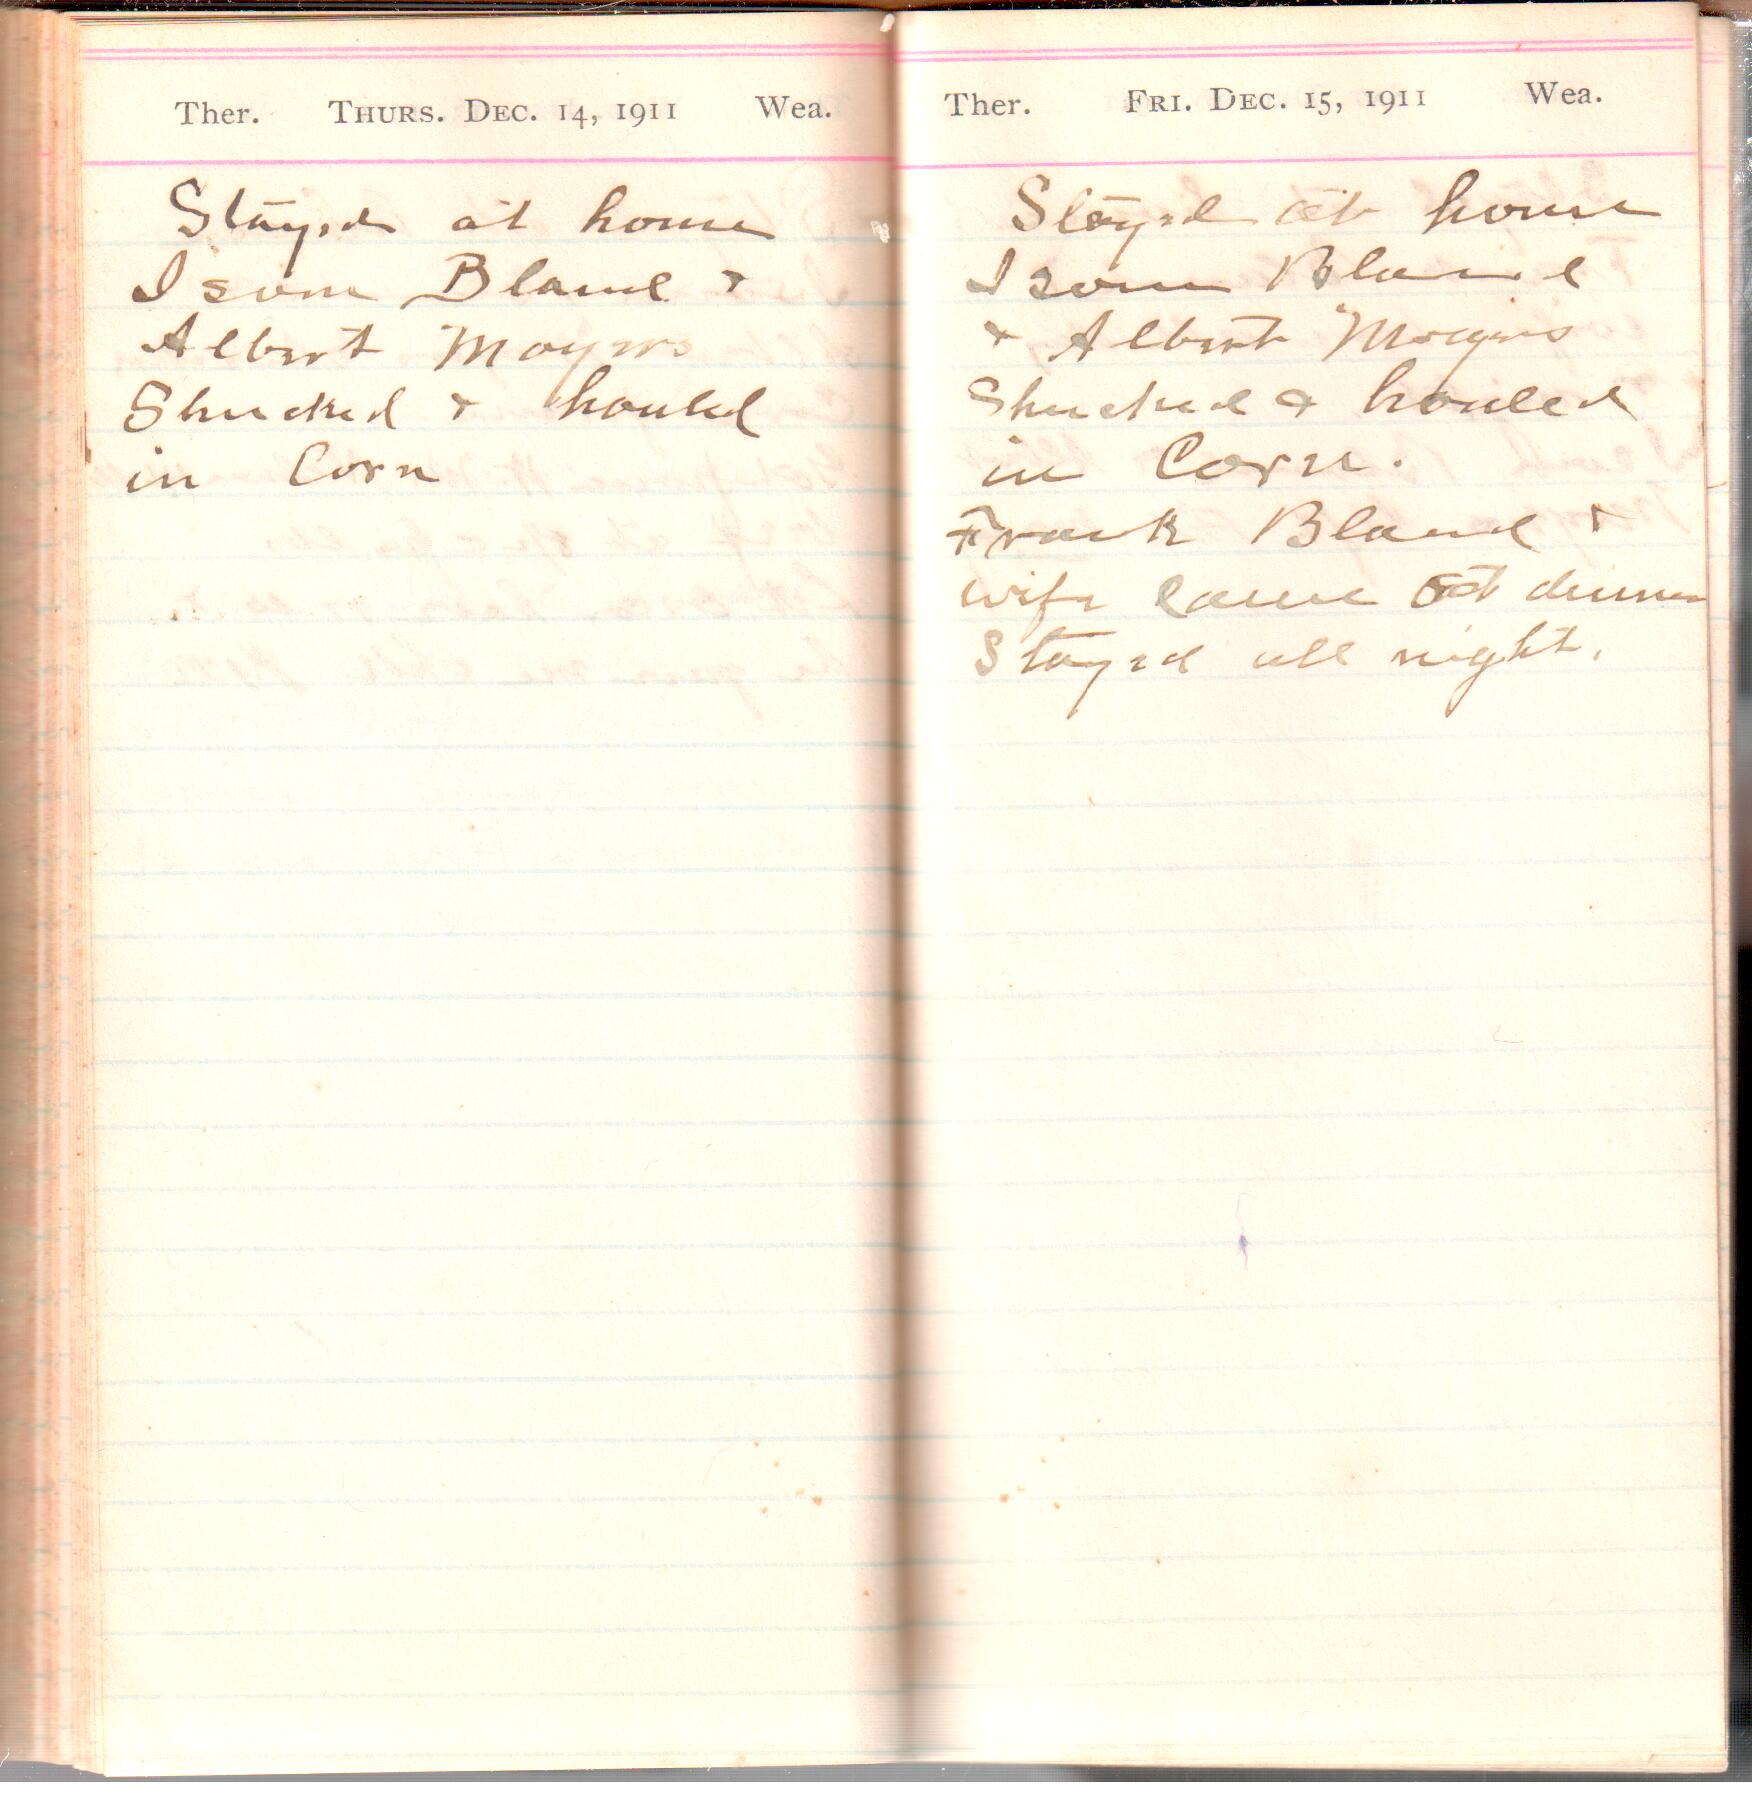 Ther. Thurs. Dec. 14, 1911 Wea.
Stayed at home
Isom Bland &
Albert Mayers
Shucked & houled
in Corn
Ther. Fri. Dec. 15, 1911 Wea.
Stayed at home
Isom Bland
& Albert Mayers
Shucked & houled
in Corn.
Frank Bland &
wife came at dinner
Stayed all night.